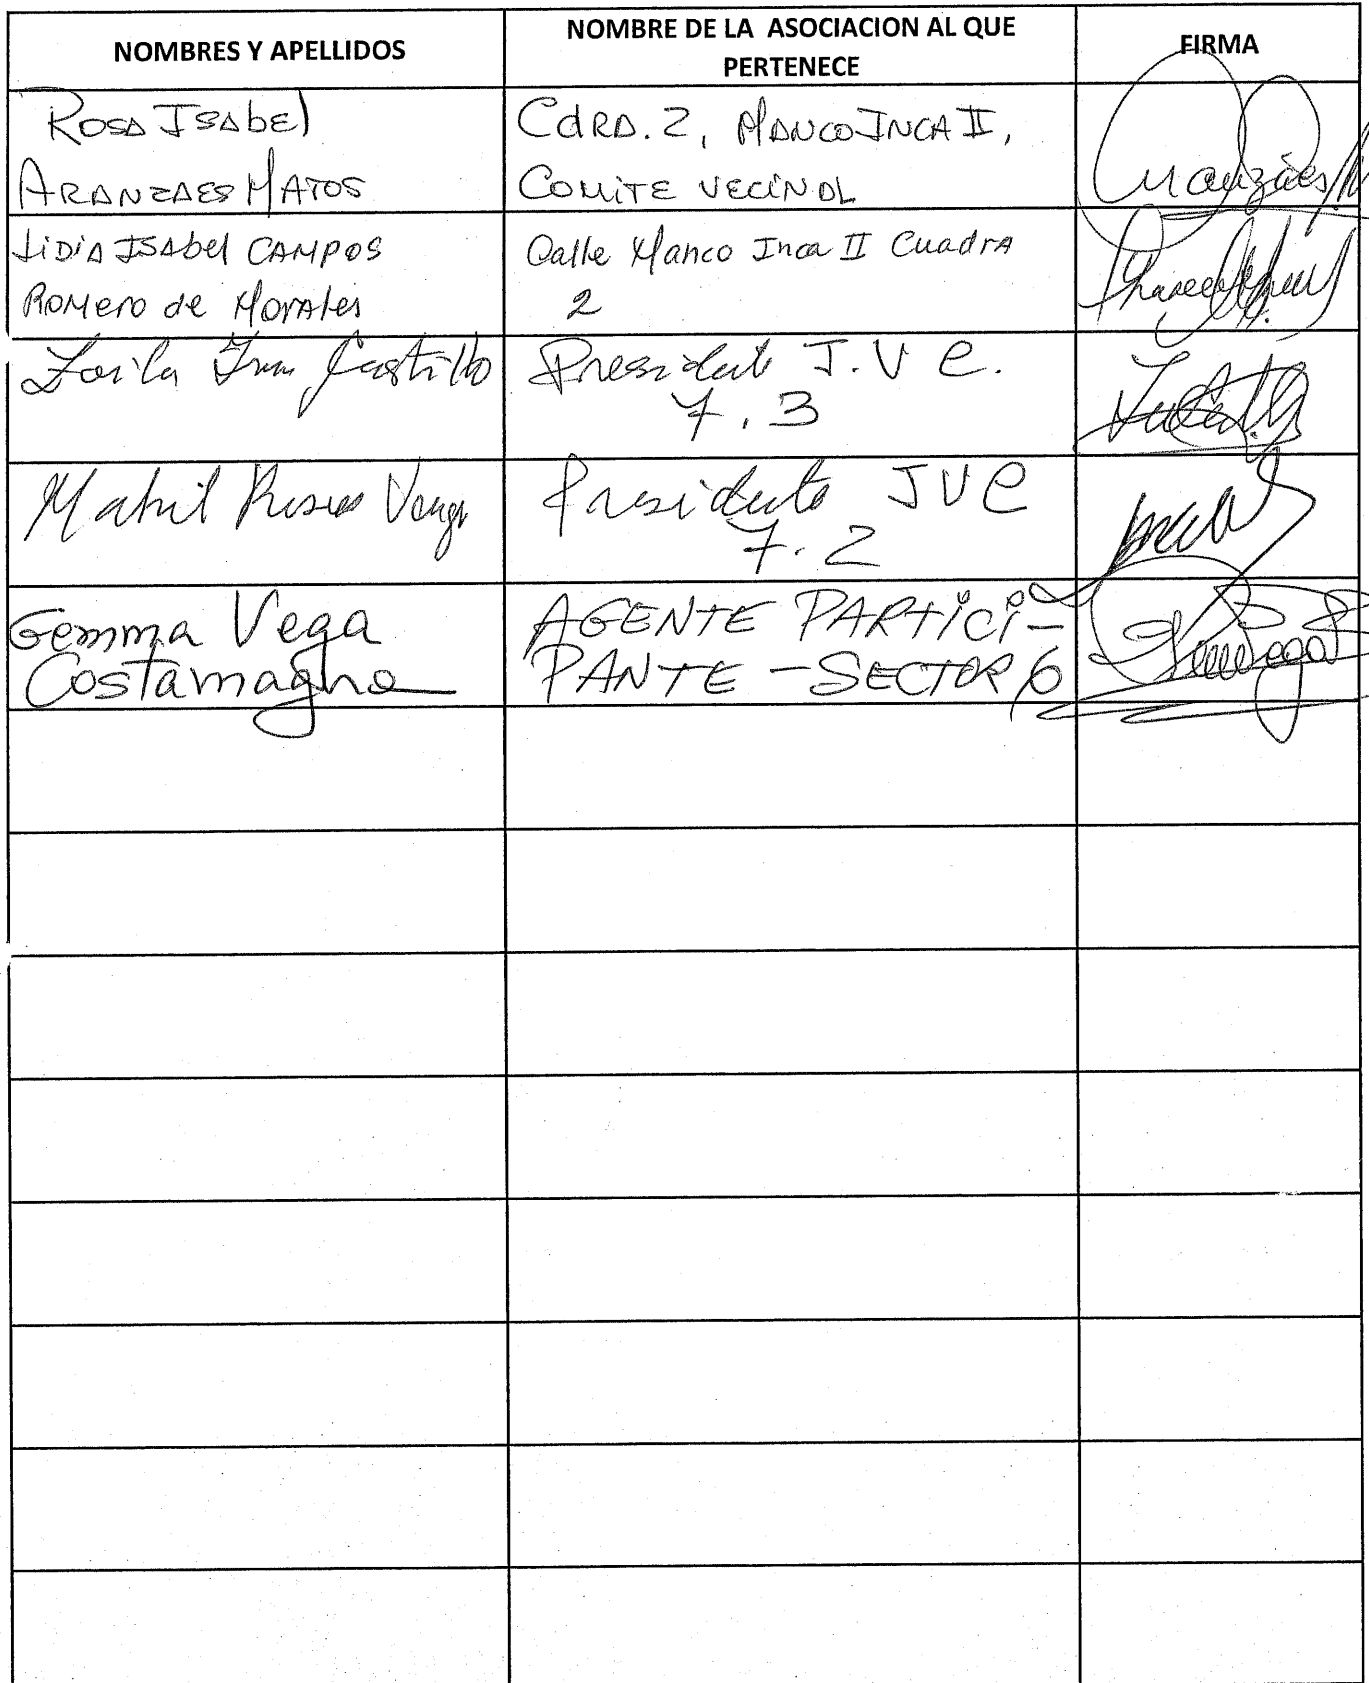 NOMBRES Y APELLIDOS
NOMBRE DE LA ASOCIACION AL QUE
PERTENECE
FIRMA
ROSA ISABEL
ARANZAES MATOS
CdRA. 2, MANCO INCA II,
COMITE VECINAL
LIDIA ISABEL CAMPOS
ROMERO de MORALES
Calle Manco Inca II Cuadra
2
Zoila Castillo
President J.V C.
7.3
Vega
Presidente JVC
7.2
Gemma Vega
Costamagna
AGENTE PARTICI-
PANTE - SECTOR 6